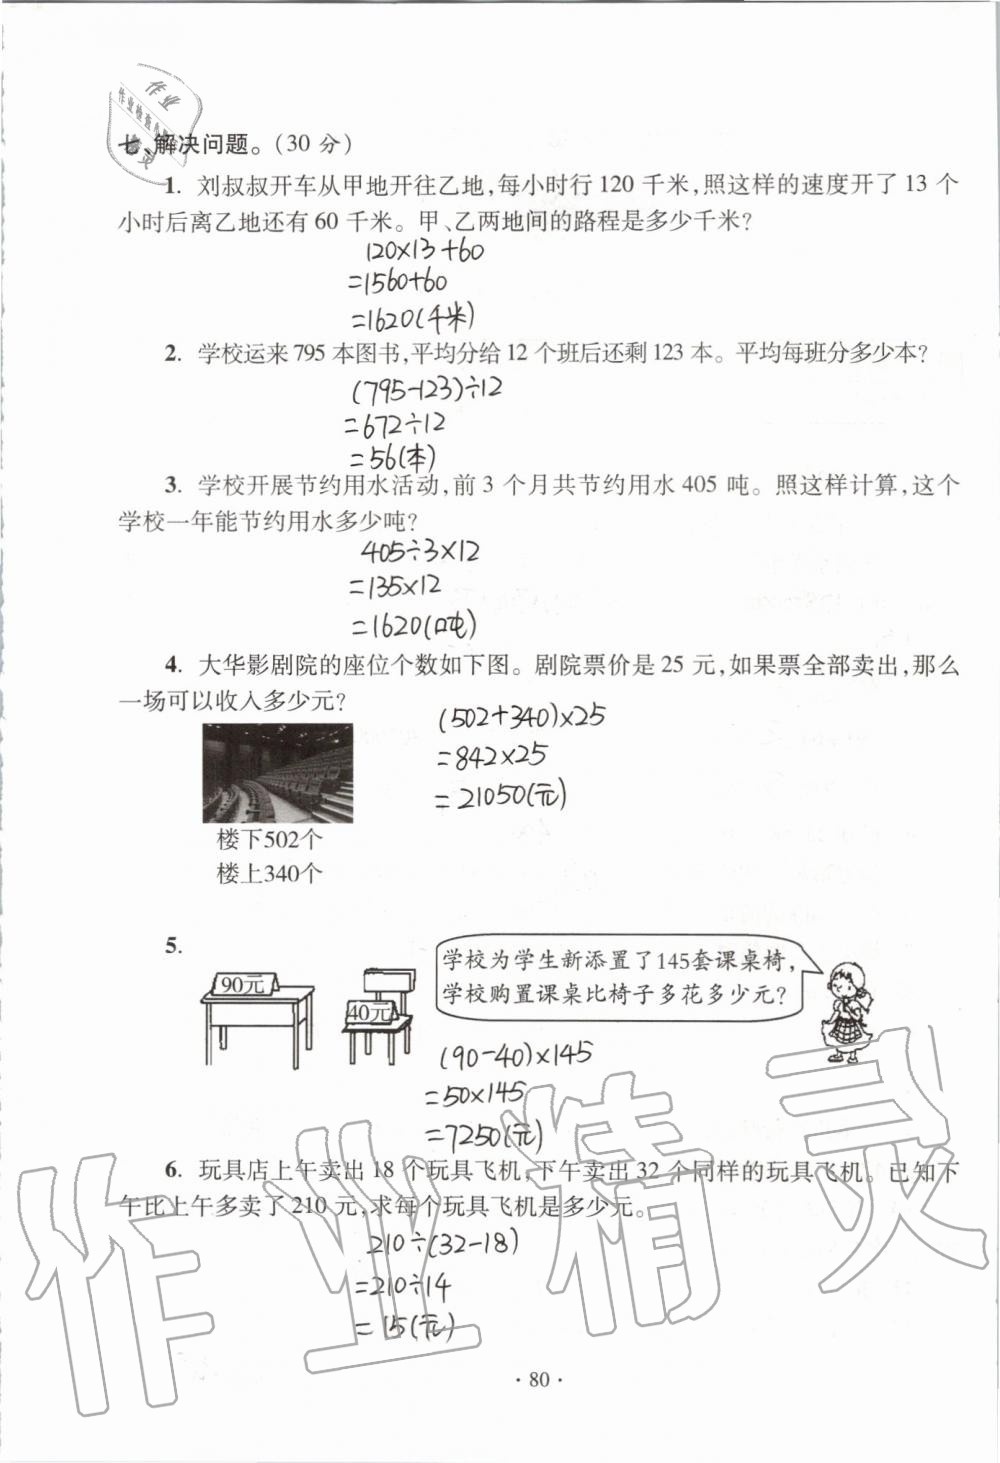 作业
作业检查小
精灵
七、解决问题。(30 分)
1. 刘叔叔开车从甲地开往乙地,每小时行 120 千米,照这样的速度开了 13 个
小时后离乙地还有 60 千米。甲、乙两地间的路程是多少千米?
120×13+60
=1560+60
=1620(千米)
2. 学校运来 795 本图书,平均分给 12 个班后还剩 123 本。平均每班分多少本?
(795-123)÷12
=672÷12
=56(本)
3. 学校开展节约用水活动,前 3 个月共节约用水 405 吨。照这样计算,这个
学校一年能节约用水多少吨?
405÷3×12
=135×12
=1620(吨)
4. 大华影剧院的座位个数如下图。剧院票价是 25 元,如果票全部卖出,那么
一场可以收入多少元?
(502+340)×25
=842×25
=21050(元)
楼下502个
楼上340个
5.
90元
40元
学校为学生新添置了145套课桌椅,
学校购置课桌比椅子多花多少元?
(90-40)×145
=50×145
=7250(元)
6. 玩具店上午卖出 18 个玩具飞机,下午卖出 32 个同样的玩具飞机。已知下
午比上午多卖了 210 元,求每个玩具飞机是多少元。
210÷(32-18)
=210÷14
=15(元)
作业精灵
· 80 ·